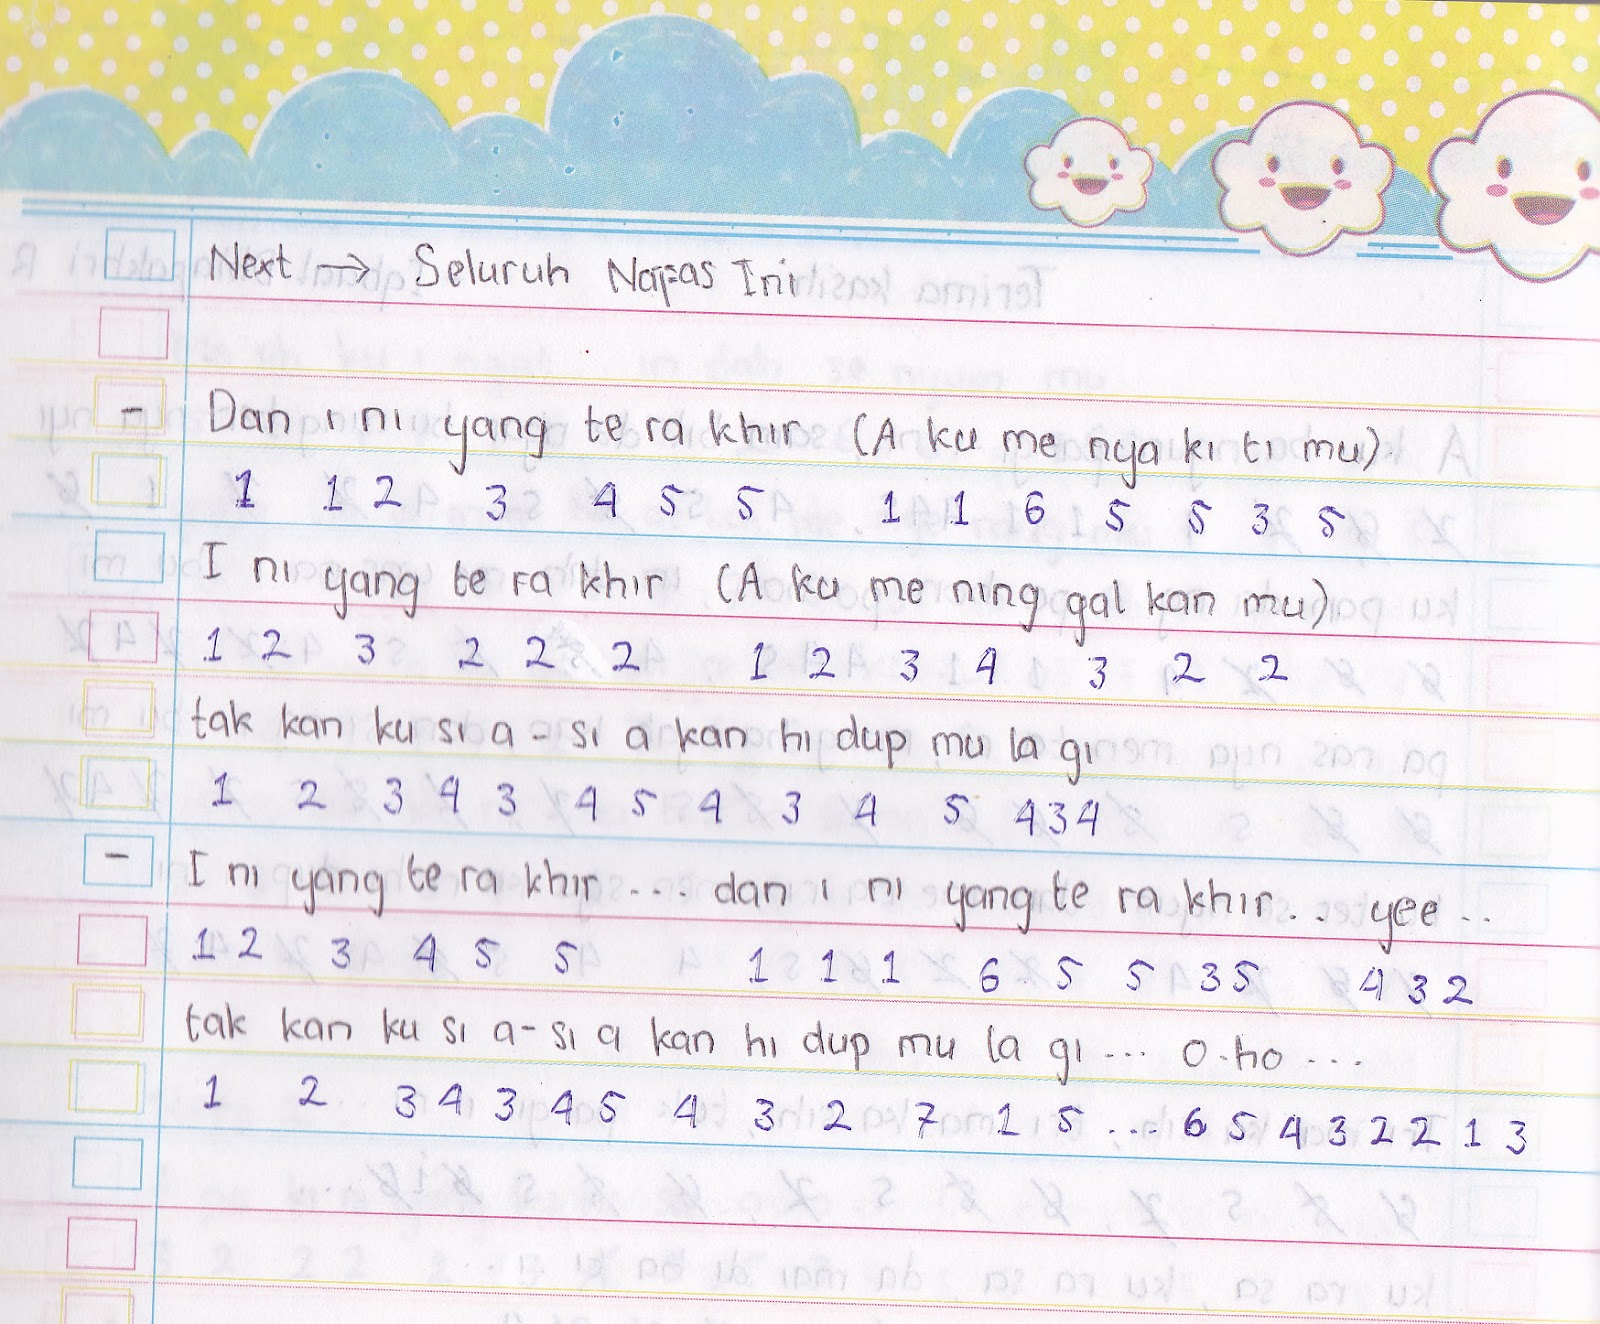 Next → Seluruh Napas Ini
- Dan i ni yang te ra khir (A ku me nya ki ti mu).
1 1 2 3 4 5 5 1 1 6 5 5 3 5
I ni yang te ra khir (A ku me ning gal kan mu)
1 2 3 2 2 2 1 2 3 4 3 2 2
tak kan ku si a - si a kan hi dup mu la gi
1 2 3 4 3 4 5 4 3 4 5 4 3 4
- I ni yang te ra khir ... dan i ni yang te ra khir .. yee ..
1 2 3 4 5 5 1 1 1 6 5 5 3 5 4 3 2
tak kan ku si a-si a kan hi dup mu la gi ... o-ho ...
1 2 3 4 3 4 5 4 3 2 7 1 5 ... 6 5 4 3 2 2 1 3